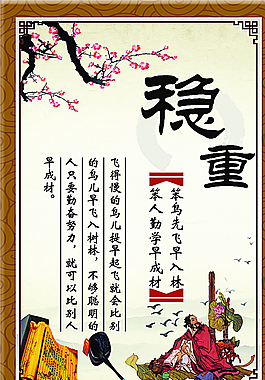 稳重
【笨鸟先飞早入林
笨人勤学早成材】
飞得慢的鸟儿提早起飞就会比别
的鸟儿早飞入树林，不够聪明的
人只要勤奋努力，就可以比别人
早成材。